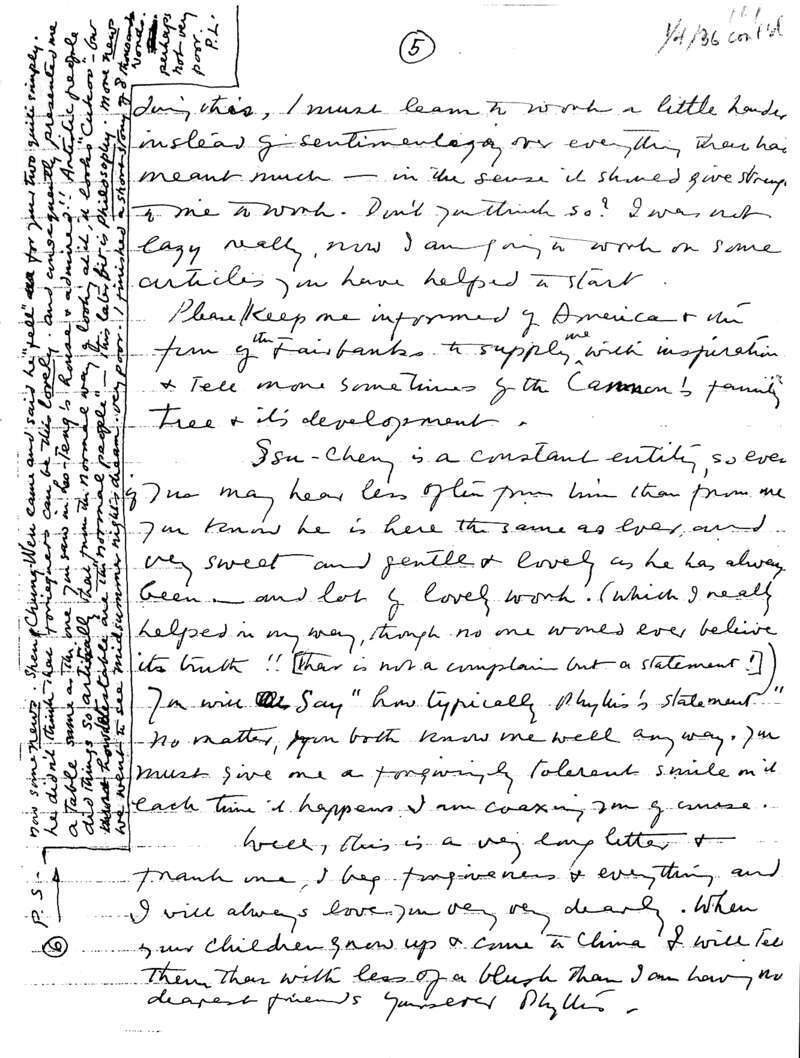 5
1/4/36 cont'd
doing this, I must learn to work a little harder
instead of sentimentalizing over everything that has
meant much — in the sense it should give strength
to me to work. Don't you think so? I was not
lazy really, now I am going to work on some
articles you have helped to start.
Please/Keep me informed of America & the
firm of the Fairbanks to supply me with inspiration
& tell more sometimes of the Cannon's family
tree & it's development.
Ssu-Cheng is a constant entity, so even
if you may hear less often from him than from me
you know he is here the same as ever, and
very sweet and gentle & lovely as he has always
been — and lot of lovely work. (which I really
helped in my way, though no one would ever believe
its truth!! [that is not a complain but a statement!])
You will say "how typically Phyllis's statement"
no matter, you both know me well any way. You
must give me a forgivingly tolerent smile on it
each time it happens. I am coaxing you of course.
Well, this is a very long letter &
frank one, I beg forgiveness & everything and
I will always love you very very dearly. When
your children grow up & come to China I will tell
them that with less of a blush than I am having now
dearest friends yours ever Phyllis.
6
P.S.
now some news. Shen Chung-Wen came and said he "fell" for you two quite simply.
he didn't think that foreigners can be this lovely. and consequently presented me
a table same as the one you saw in Lao-Teng's house & admired!! Artistic people
did things so artistically that from the normal way of looking at it, it looks "Cukoo" - but
how detestable are the "normal people" — this later bit is Philosophy. more news
we went to see midsummer night's dream. very poor. I finished a short story of 8 thousand
words.
perhaps
not very
poor.
P.L.